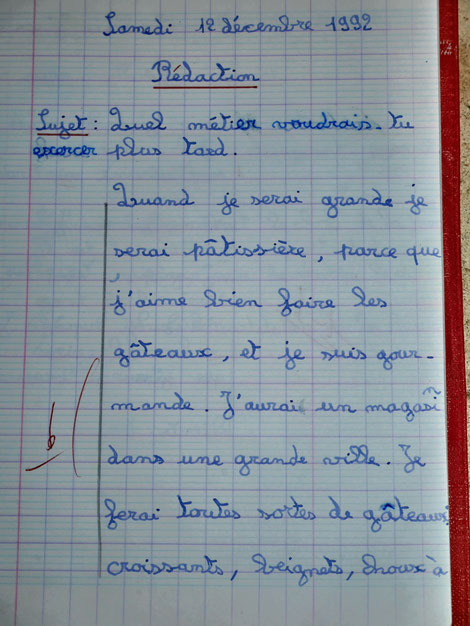 Samedi 12 décembre 1992
Rédaction
Sujet : Quel métier voudrais-tu
exercer plus tard.
Quand je serai grande je
serai pâtissière, parce que
j'aime bien faire les
gâteaux, et je suis gour-
mande. J'aurai un magasi
dans une grande ville. Je
ferai toutes sortes de gâteaux
croissants, beignets, choux à